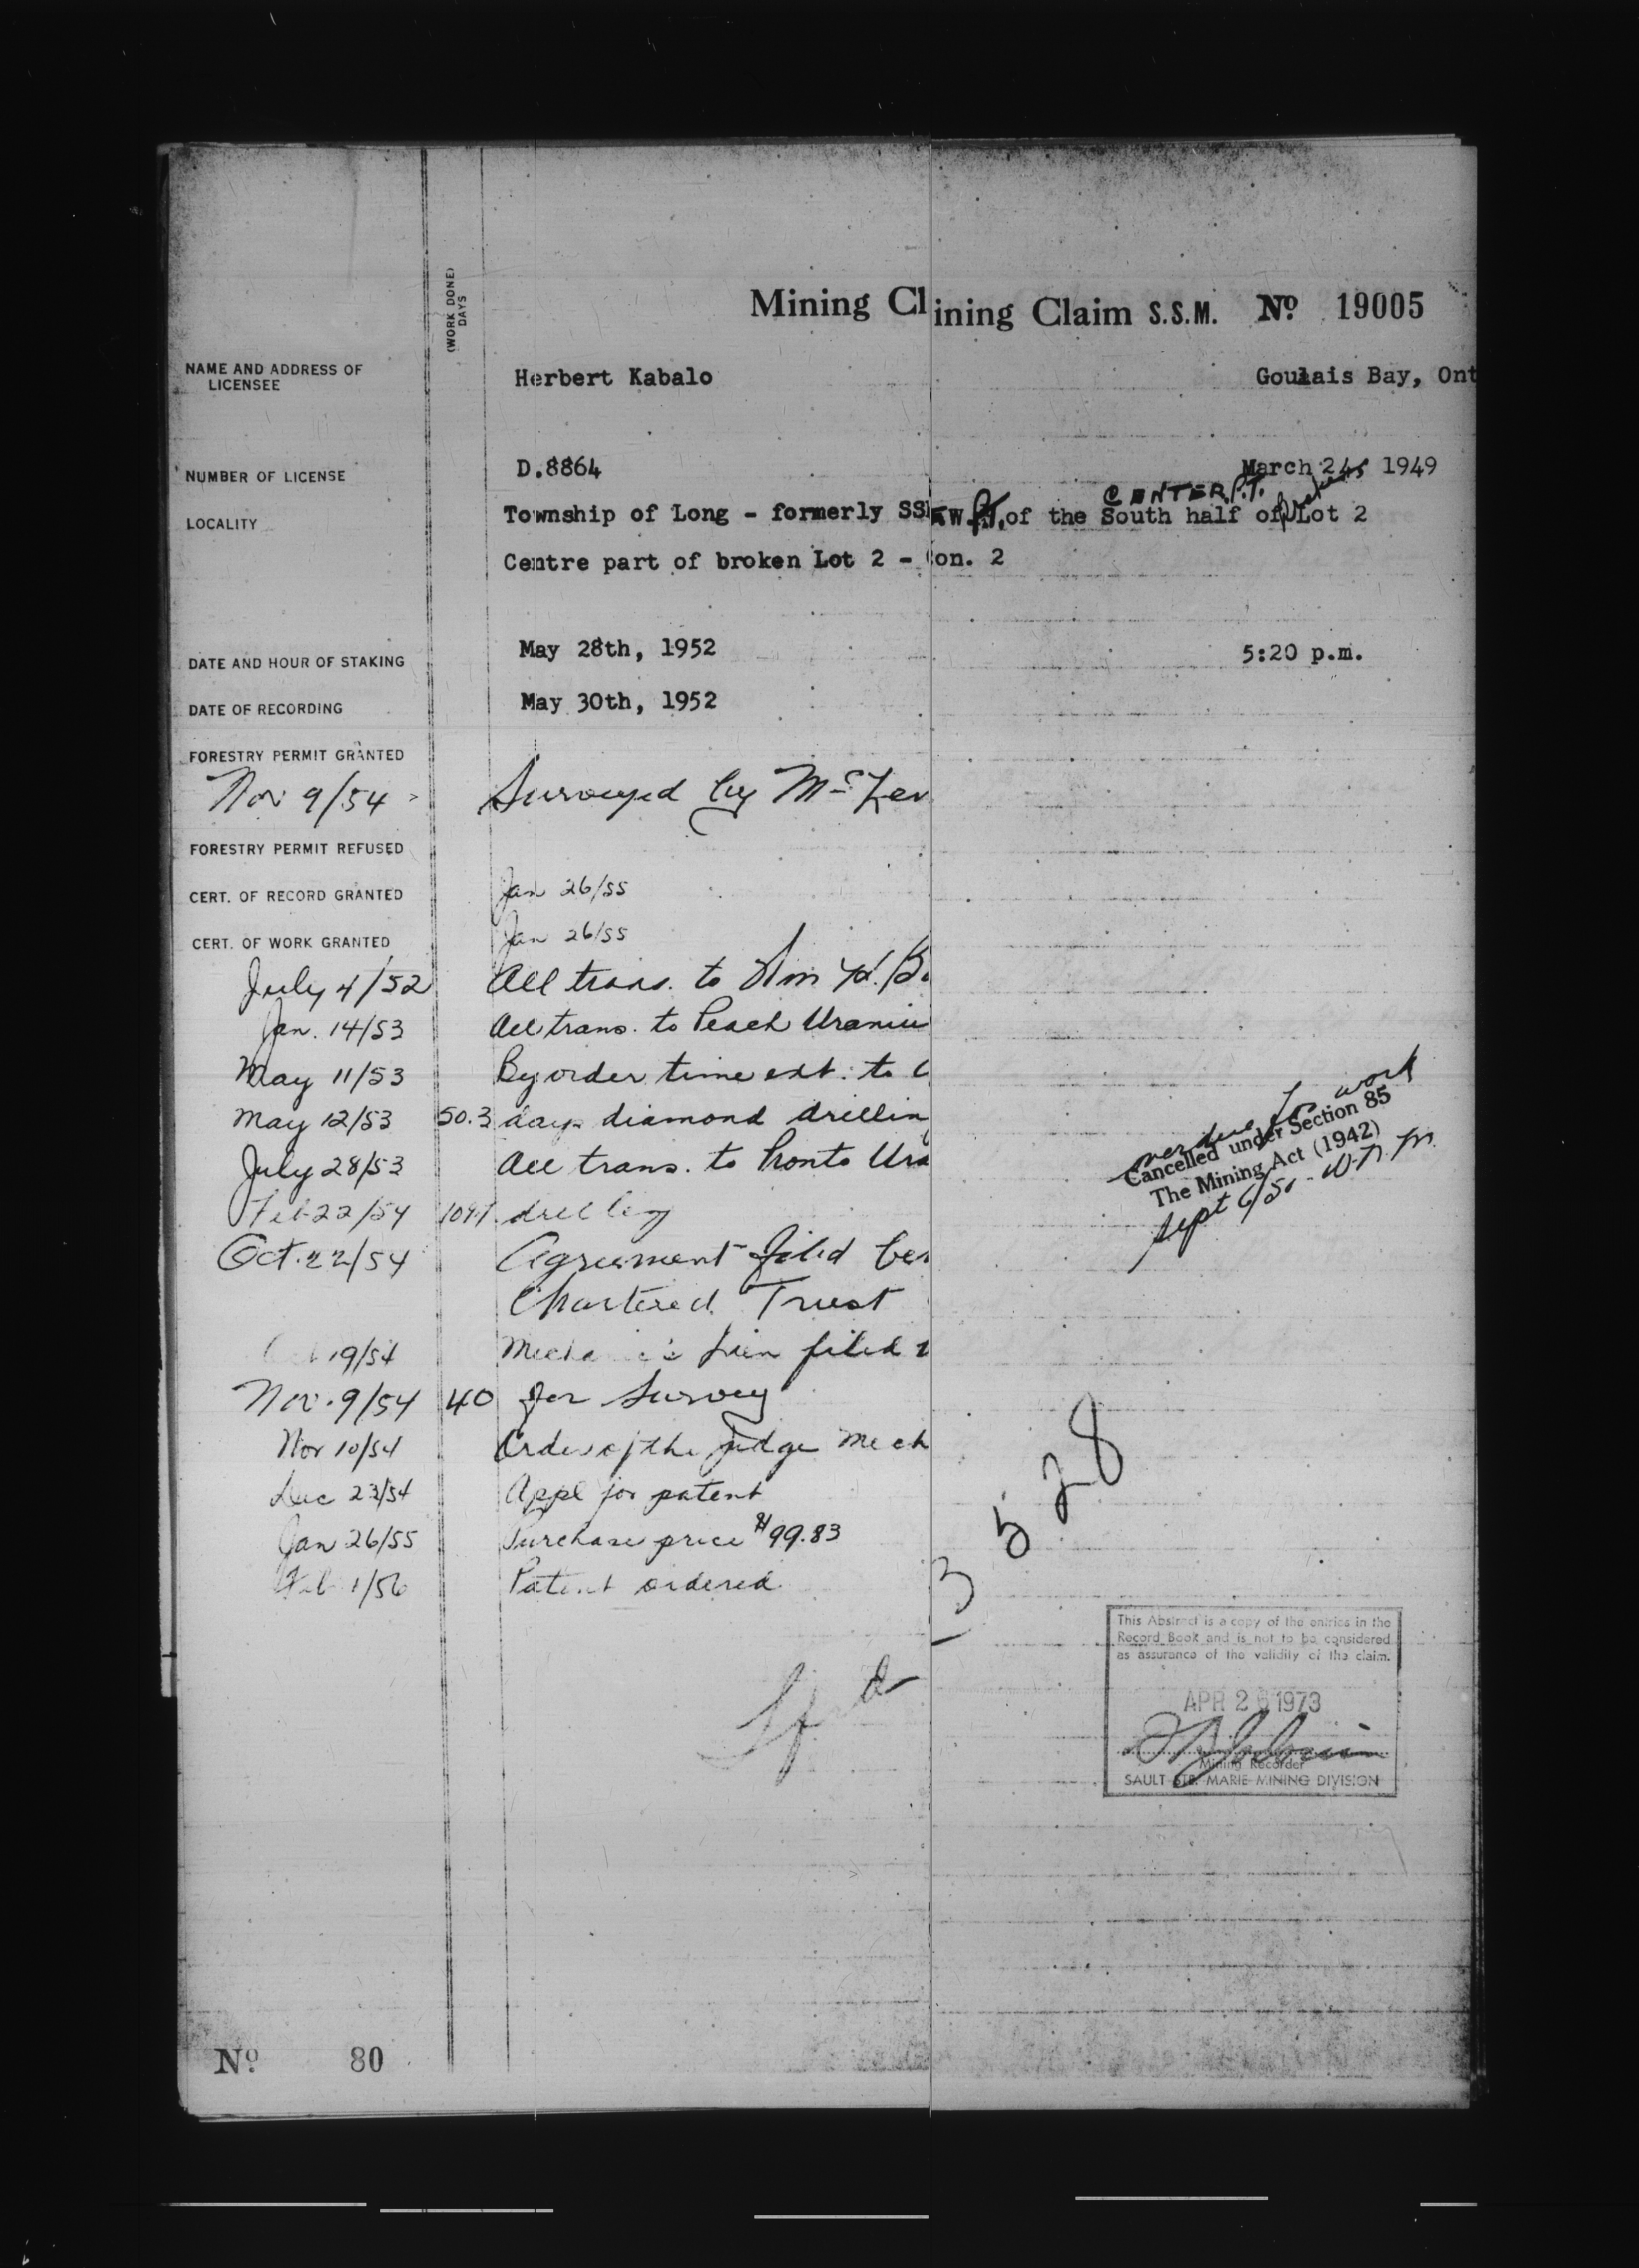 Mining Cl ining Claim S.S.M. No 19005
(WORK DONE)
DAYS
NAME AND ADDRESS OF
LICENSEE
Herbert Kabalo Goulais Bay, Ont
NUMBER OF LICENSE D.8864 March 24, 1949
CENTER P.T. Broken
LOCALITY Township of Long - formerly SS W. P.T. of the South half of Lot 2
Centre part of broken Lot 2 - Con. 2
DATE AND HOUR OF STAKING May 28th, 1952 5:20 p.m.
DATE OF RECORDING May 30th, 1952
FORESTRY PERMIT GRANTED
Nov 9/54 Surveyed by
FORESTRY PERMIT REFUSED
CERT. OF RECORD GRANTED Jan 26/55
CERT. OF WORK GRANTED Jan 26/55
July 4/52 All trans. to Wm H. B
Jan. 14/53 All trans. to Peach Uraniu
May 11/53 By order time ext. to
May 12/53 50.3 days diamond drillin
July 28/53 All trans. to Pronto Ura
Feb 22/54 109.1 drilling
Oct. 22/54 Agreement filed be
Chartered Trust
Oct 19/54 Mechanic's Lien filed
Nov. 9/54 40 for Survey
Nov 10/54 Order of the judge Mech
Dec 23/54 Appl for patent
Jan 26/55 Purchase price $99.83
Feb 1/56 Patent ordered
overdue for work
Cancelled under Section 85
The Mining Act (1942)
Sept 6/51 - W.N.M.
13528
This Abstract is a copy of the entries in the
Record Book and is not to be considered
as assurance of the validity of the claim.
APR 26 1973
Mining Recorder
SAULT STE. MARIE MINING DIVISION
No 80